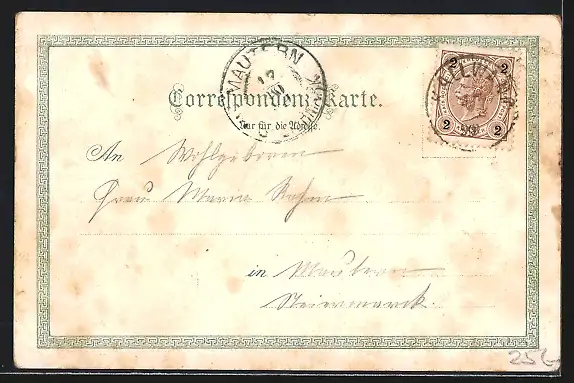 MAUTERN
Correspondenz-Karte.
Nur für die Adresse.
2 2
2 2
An Wohlgeboren
Frau Maria
in Mautern
Steiermark
256